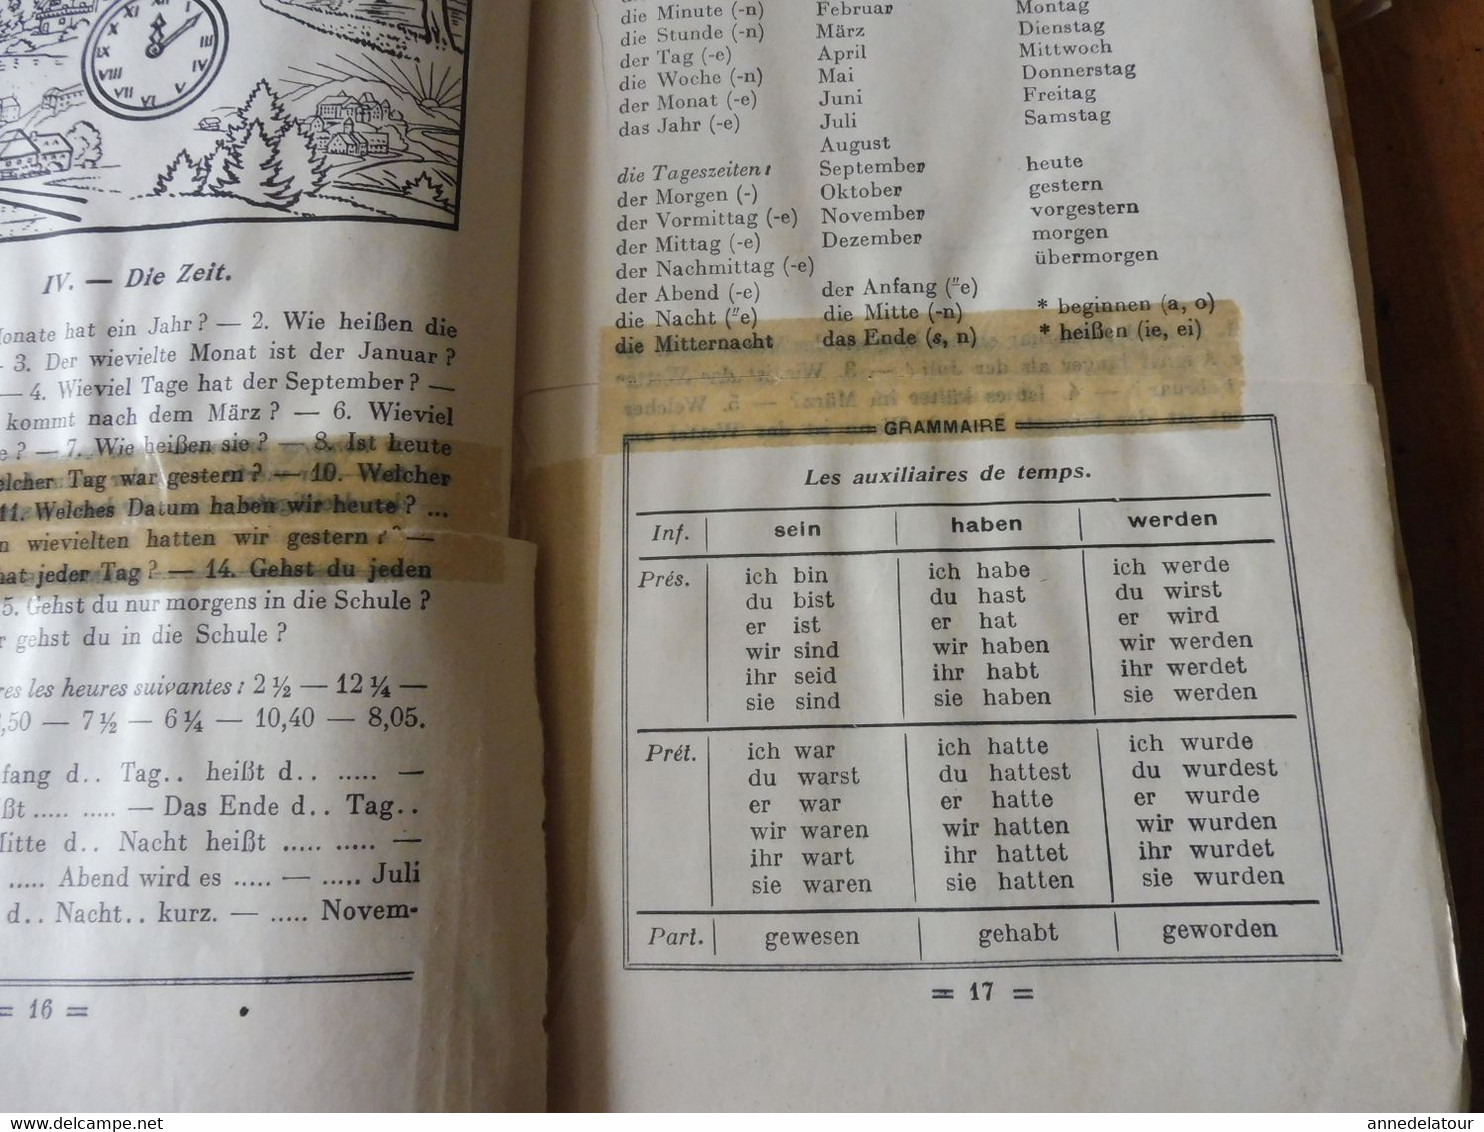 XI XII I
X
IX
VIII
VII VI V
IV
III
IV. — Die Zeit.
Monate hat ein Jahr ? — 2. Wie heißen die
3. Der wievielte Monat ist der Januar ?
— 4. Wieviel Tage hat der September ? —
kommt nach dem März ? — 6. Wieviel
e ? — 7. Wie heißen sie ? — 8. Ist heute
elcher Tag war gestern ? — 10. Welcher
11. Welches Datum haben wir heute ? ...
n wievielten hatten wir gestern ? —
hat jeder Tag ? — 14. Gehst du jeden
5. Gehst du nur morgens in die Schule ?
r gehst du in die Schule ?
res les heures suivantes : 2 ½ — 12 ¼ —
,50 — 7 ½ — 6 ¼ — 10,40 — 8,05.
fang d.. Tag.. heißt d.. ..... —
ißt ..... ..... — Das Ende d.. Tag..
Mitte d.. Nacht heißt ..... ..... —
..... Abend wird es ..... — ..... Juli
d.. Nacht.. kurz. — ..... Novem-
= 16 =
die Minute (-n) Februar Montag
die Stunde (-n) März Dienstag
der Tag (-e) April Mittwoch
die Woche (-n) Mai Donnerstag
der Monat (-e) Juni Freitag
das Jahr (-e) Juli Samstag
August
die Tageszeiten : September heute
der Morgen (-) Oktober gestern
der Vormittag (-e) November vorgestern
der Mittag (-e) Dezember morgen
der Nachmittag (-e) übermorgen
der Abend (-e) der Anfang (¨e)
die Nacht (¨e) die Mitte (-n) * beginnen (a, o)
die Mitternacht das Ende (s, n) * heißen (ie, ei)
GRAMMAIRE
Les auxiliaires de temps.
Inf. sein haben werden
Prés. ich bin ich habe ich werde
du bist du hast du wirst
er ist er hat er wird
wir sind wir haben wir werden
ihr seid ihr habt ihr werdet
sie sind sie haben sie werden
Prét. ich war ich hatte ich wurde
du warst du hattest du wurdest
er war er hatte er wurde
wir waren wir hatten wir wurden
ihr wart ihr hattet ihr wurdet
sie waren sie hatten sie wurden
Part. gewesen gehabt geworden
= 17 =
www.delcampe.net
annedelatour